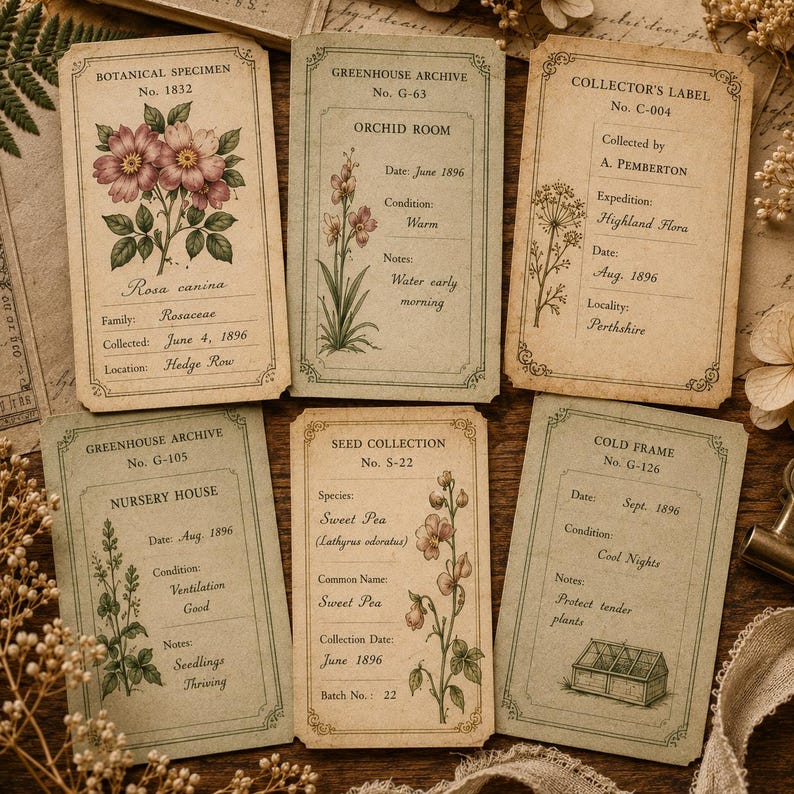 BOTANICAL SPECIMEN
No. 1832
Rosa canina
Family: Rosaceae
Collected: June 4, 1896
Location: Hedge Row
GREENHOUSE ARCHIVE
No. G-63
ORCHID ROOM
Date: June 1896
Condition:
Warm
Notes:
Water early
morning
COLLECTOR'S LABEL
No. C-004
Collected by
A. PEMBERTON
Expedition:
Highland Flora
Date:
Aug. 1896
Locality:
Perthshire
GREENHOUSE ARCHIVE
No. G-105
NURSERY HOUSE
Date: Aug. 1896
Condition:
Ventilation
Good
Notes:
Seedlings
Thriving
SEED COLLECTION
No. S-22
Species:
Sweet Pea
(Lathyrus odoratus)
Common Name:
Sweet Pea
Collection Date:
June 1896
Batch No.: 22
COLD FRAME
No. G-126
Date: Sept. 1896
Condition:
Cool Nights
Notes:
Protect tender
plants